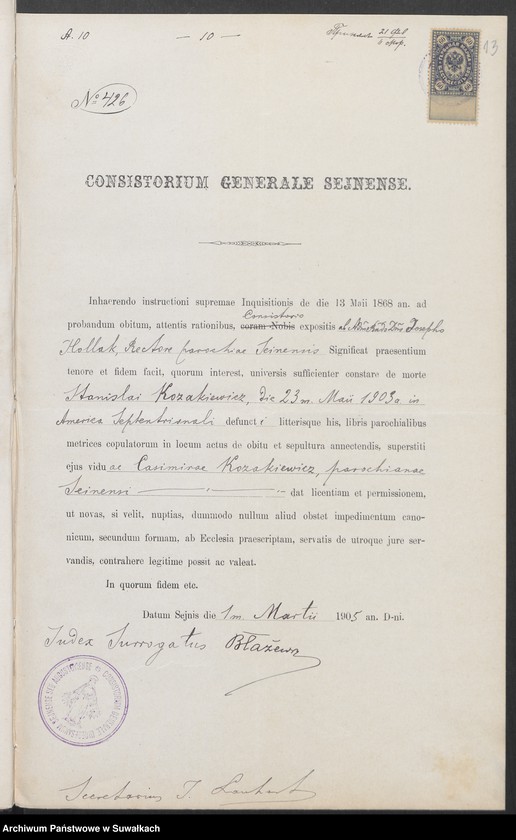 A. 10
— 10 —
21 Feb
13
№ 426
CONSISTORIUM GENERALE SEJNENSE.
Inhaerendo instructioni supremae Inquisitionis de die 13 Maii 1868 an. ad
Consistorio
probandum obitum, attentis rationibus, coram Nobis expositis Josepho
Hollak, Rectore parochiae Seinensis Significat praesentium
tenore et fidem facit, quorum interest, universis sufficienter constare de morte
Stanislai Kozakiewicz, die 23 m. Maii 1903 a. in
America Septentrionali defuncti litterisque his, libris parochialibus
metrices copulatorum in locum actus de obitu et sepultura annectendis, superstiti
ejus viduae Casimirae Kozakiewicz, parochianae
Seinensi dat licentiam et permissionem,
ut novas, si velit, nuptias, dummodo nullum aliud obstet impedimentum cano-
nicum, secundum formam, ab Ecclesia praescriptam, servatis de utroque jure ser-
vandis, contrahere legitime possit ac valeat.
In quorum fidem etc.
Datum Sejnis die 1 m. Martii 1905 an. D-ni.
Judex Surrogatus Błażewicz
Secretarius J.
Archiwum Państwowe w Suwałkach